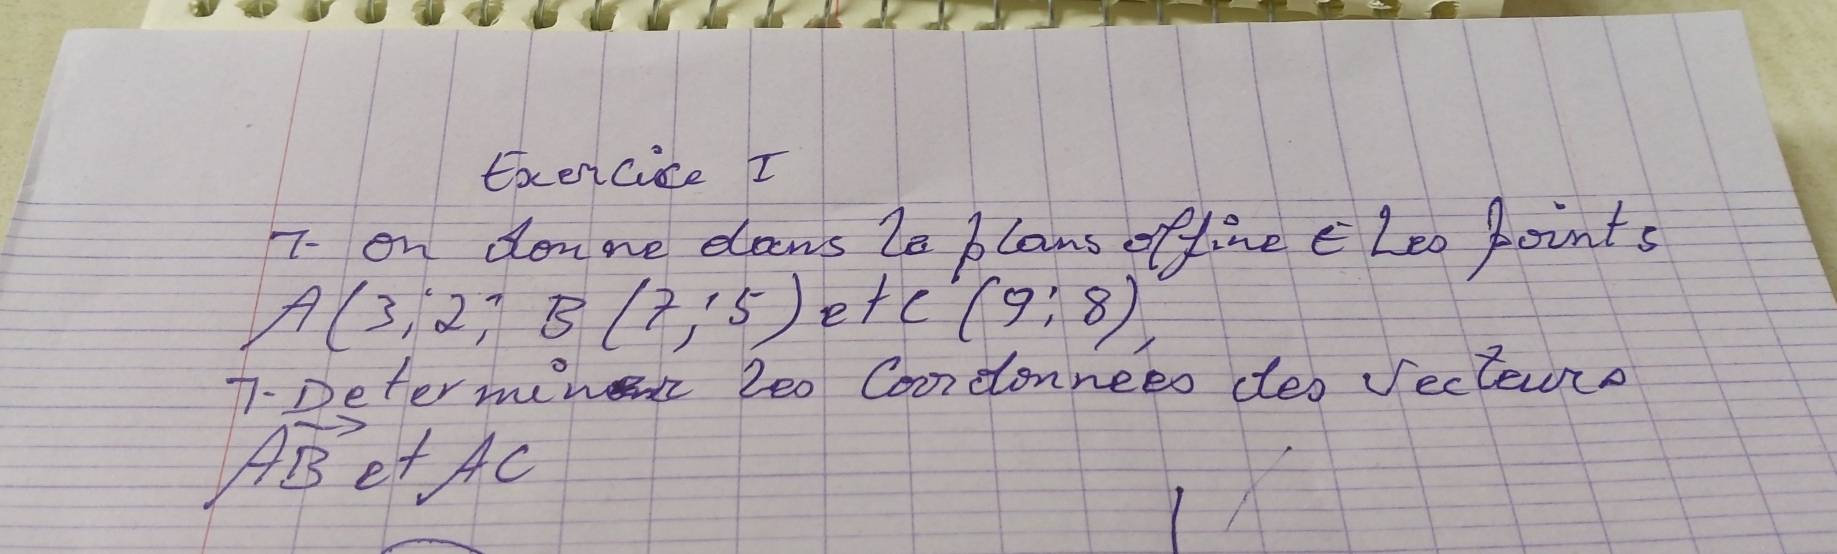 Exercice I
1- on donne dans le plans affine E Les points
A(3;2; B (7;5) et C (9;8)
1- Determiner les Coordonnées des vecteurs
AB et AC